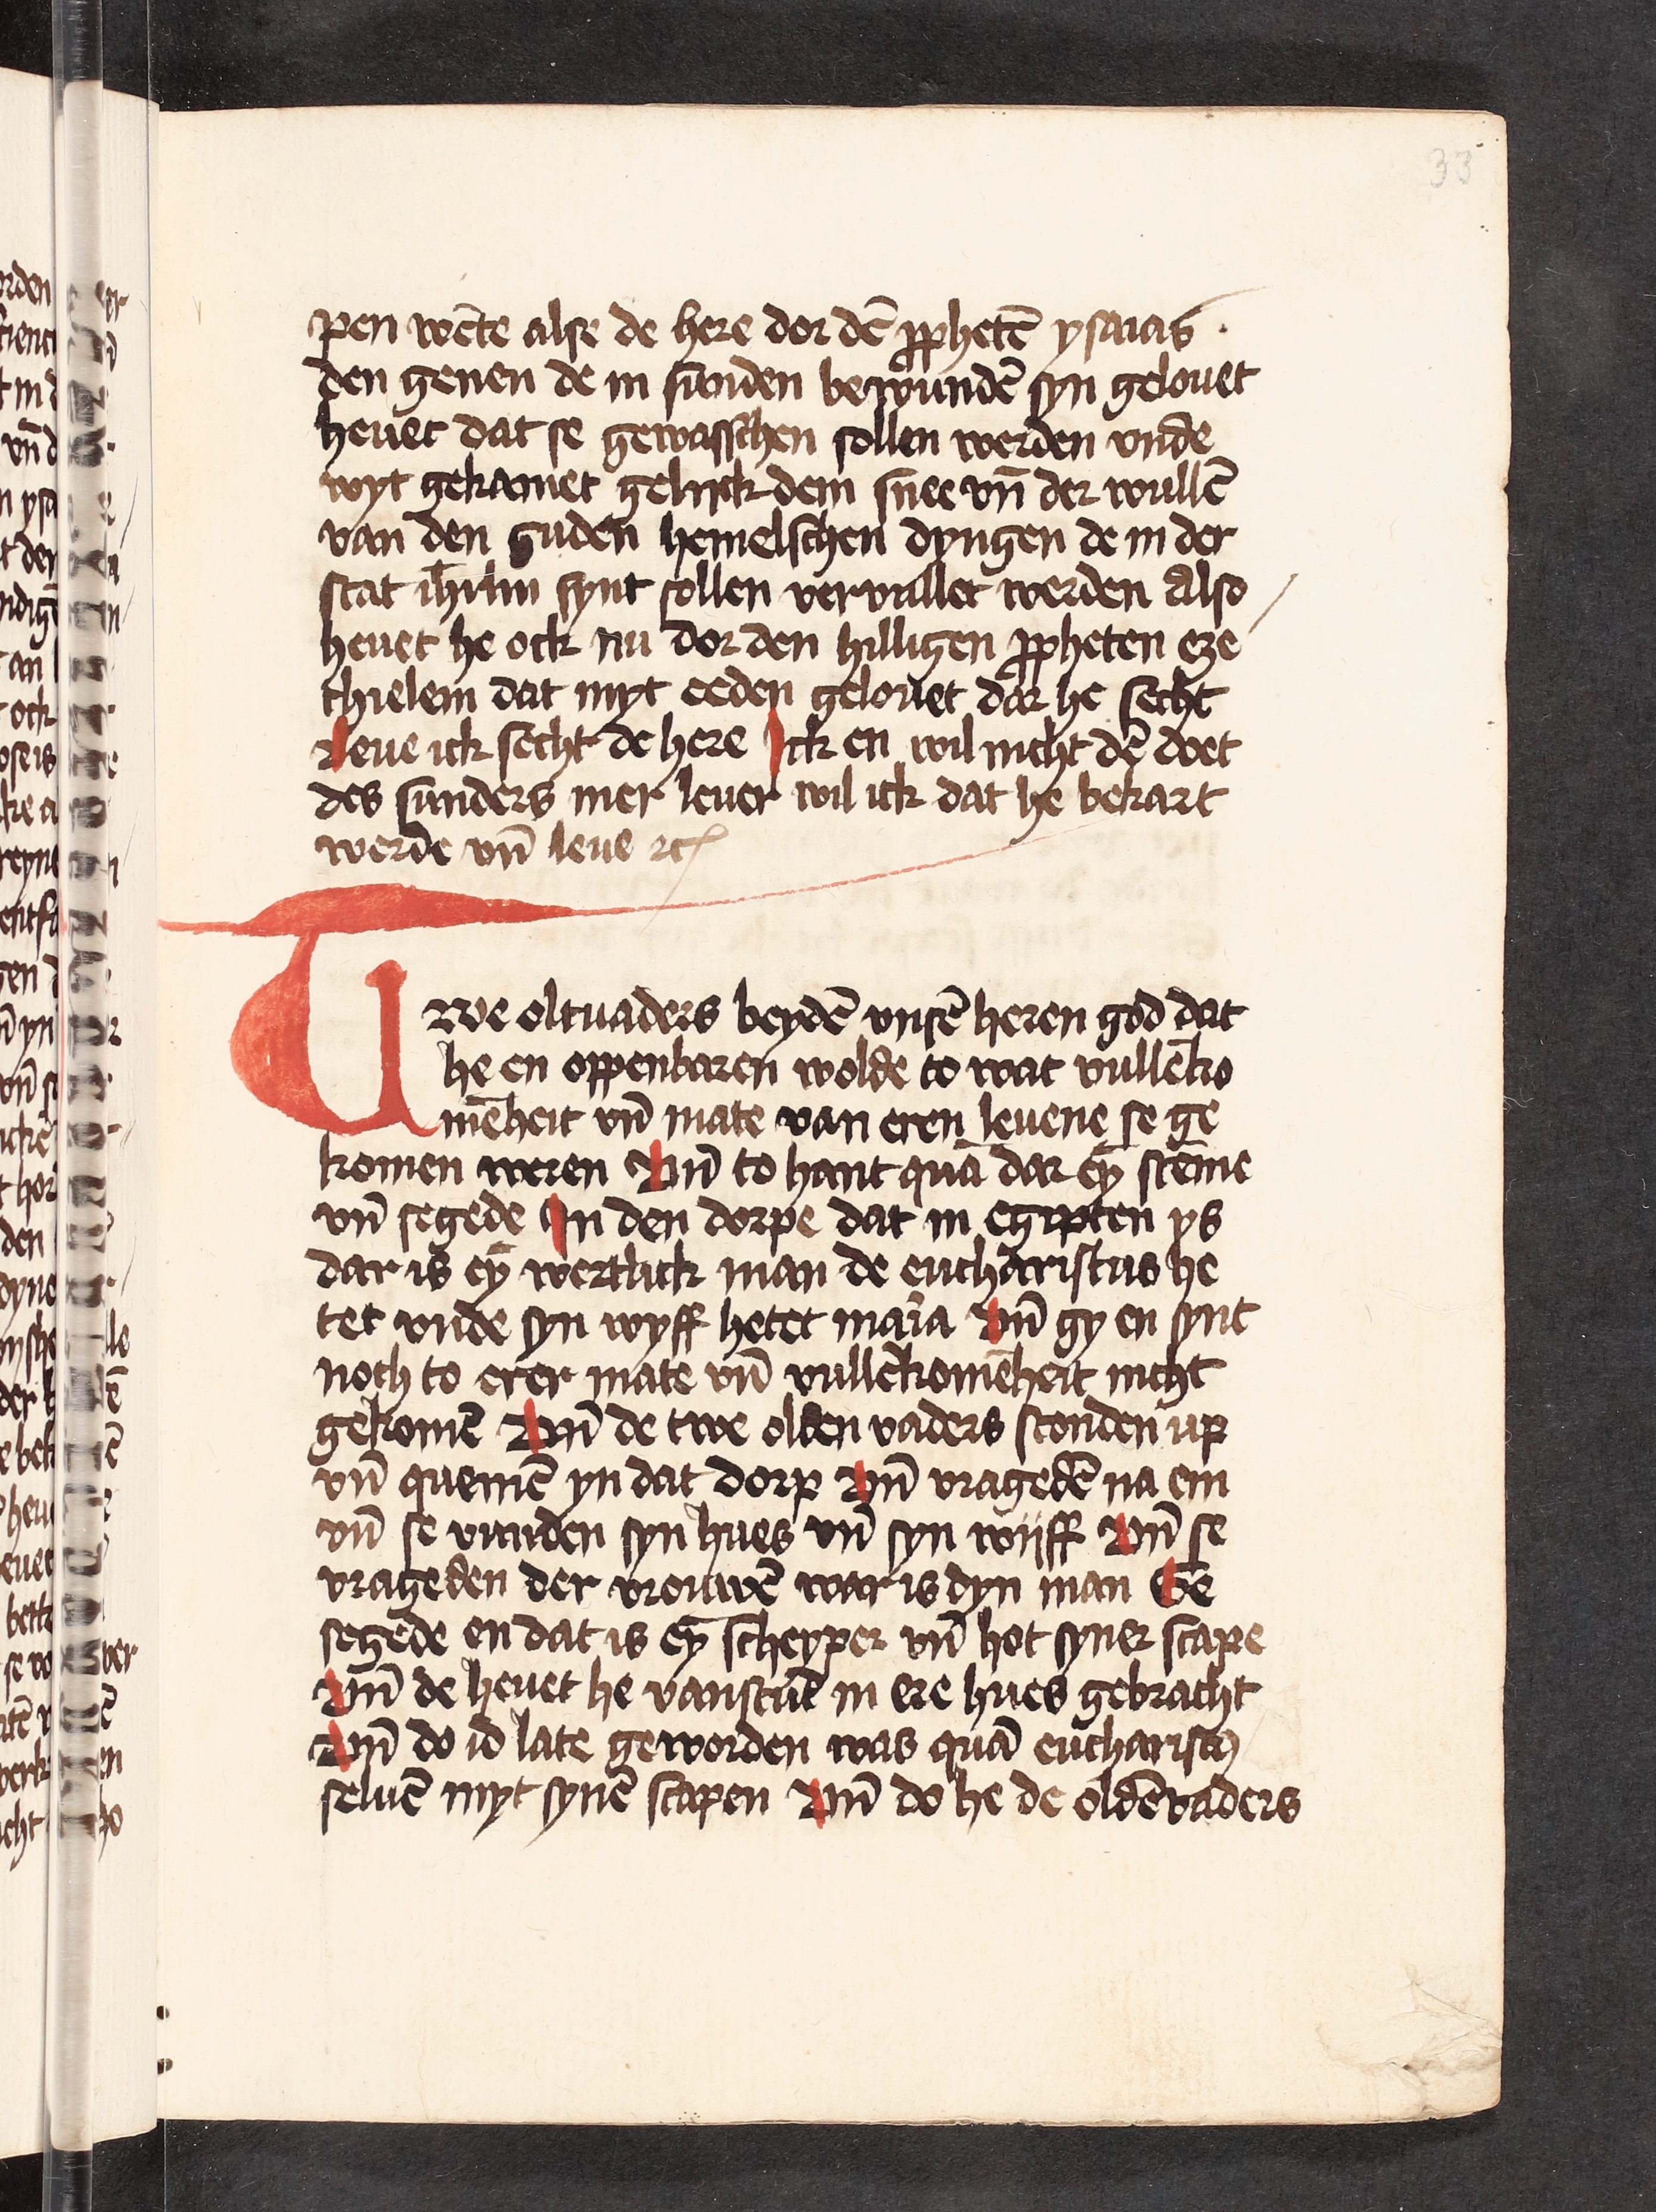 33
pen wēte alse de here dor dē ꝓphetē ysaias ·
den genen de in sunden bewundē syn gelouet
heuet dat se gewasschen sollen werden vnde
wyt gekamet gelyck dem snee vn̄ der wullē
van den guden hemelschen dyngen de in der
stat ihrl̄m synt sollen vervullet werden Also
heuet he ock nu dor den hilligen ꝓpheten eze
chielem dat myt eeden gelouet dar he secht
Leue ick secht de here Ick en wil nicht dē doet
des sunders mer leuer wil ick dat he bekart
werde vn̄ leue ꝛc
Twe oltuaders beydē vnsē heren god dat
he en oppenbaren wolde to wat vullēko
mēheit vn̄ mate van eren leuene se ge
komen weren Vn̄ to hant quā dar eȳ stēme
vn̄ segede In den dorpe dat in egipten ys
dar is eȳ wertlick man de eucharistus he
tet vnde syn wyff hetet maria Vn̄ gy en synt
noch to erer mate vn̄ vullēkomēheit nicht
gekomē Vn̄ de twe olden vaders stonden up
vn̄ quemē yn dat dorp Vn̄ vragedē na em
vn̄ se vunden syn hues vn̄ syn wijff Vn̄ se
vrageden der vrouwē war is dyn man Se
segede en dat is eȳ scheyper vn̄ hot syner scape
Vn̄ de heuet he vanstūt in ere hues gebracht
Vn̄ do id late geworden was quā eucharist⁹
seluē myt synē scapen Vn̄ do he de oldēvaders